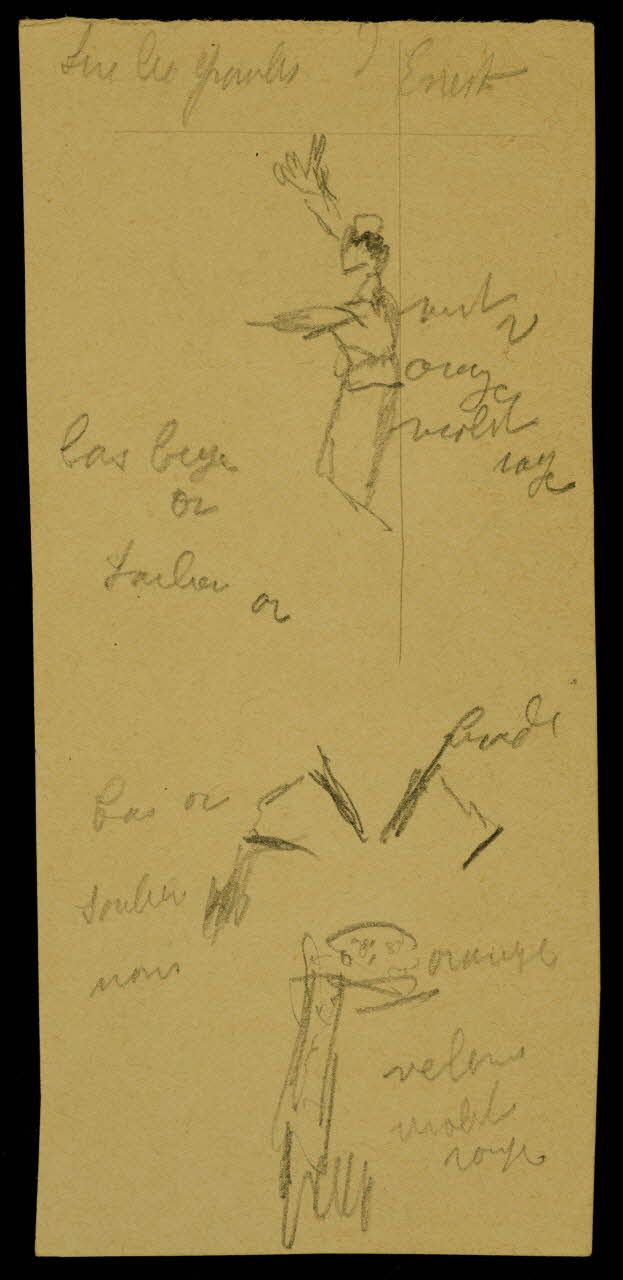 Ernest
vert
orange
violet
rouge
bas beige
or
Soulier
or
brodé
bas or
Soulier
noir
orange
velours
violet
rouge